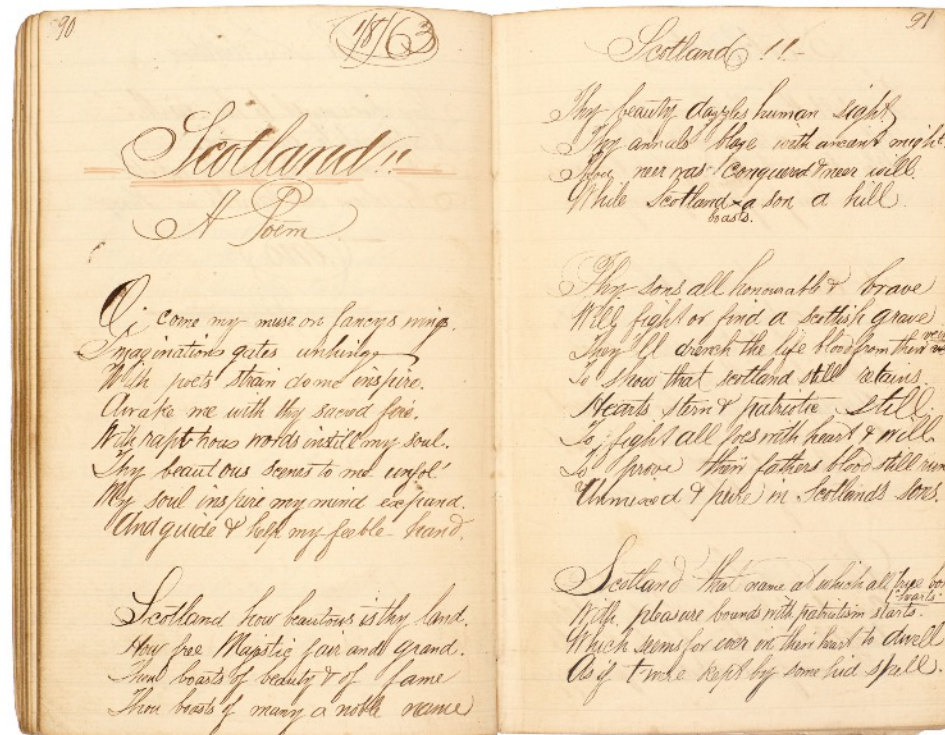 90
1863
Scotland!!
A Poem
O; come my muse on fancys wing.
Imaginations gates unhinge
With poets strain do me inspire.
Awake me with thy sacred fire.
With rapt'rous words instill my soul.
Thy beautous scenes to me unfol'
My soul inspire my mind expand.
And guide & help my feeble hand.
Scotland how beautous is thy land.
How free Majestic fair and grand.
Thou boasts of beauty & of fame
Thou boasts of many a noble name
91
Scotland !!-
Thy beauty dazzles human sight
Thy annals blaze with ancient might.
Thou neer was conquerd & neer will.
While Scotland x a son a hill.
boasts.
Thy sons all honourable & brave
Will fight or find a scottish grave
They'll drench the life blood from their
To show that scotland still retains.
Hearts stern & patriotic still.
To fight all foes with heart & will.
To prove their fathers blood still run
Unmixed & pure in Scotlands sons.
Scotland that name at which all true bo
hearts.
With pleasure bounds with patriotism starts.
Which seems for ever in their heart to dwell
As if t'were kept by some hid spell.